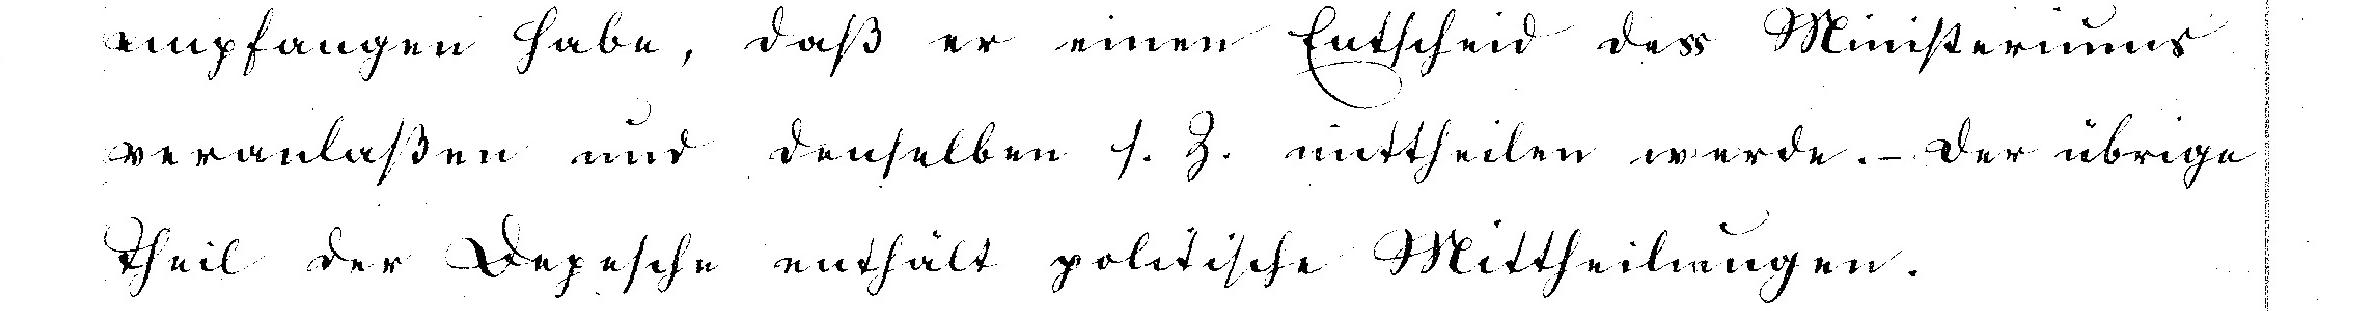 empfangen habe, daß er einen Entscheid des Ministeriums
veranlaßen und denselben s. Z. mittheilen werde. – Der übrige
Theil der Depesche enthält politische Mittheilungen.